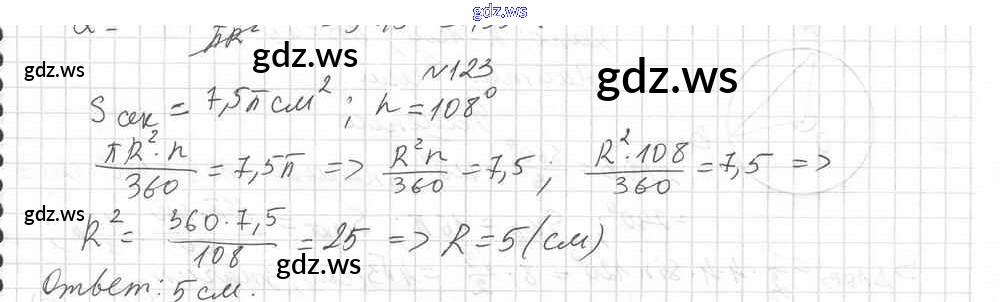 gdz.ws
πR²
gdz.ws gdz.ws gdz.ws
№123
Sсек = 7,5π см² ; n = 108°
πR²·n/360 = 7,5π => R²n/360 = 7,5 ; R²·108/360 = 7,5 =>
gdz.ws
R² = 360·7,5/108 = 25 => R = 5 (см)
gdz.ws
Ответ: 5 см.